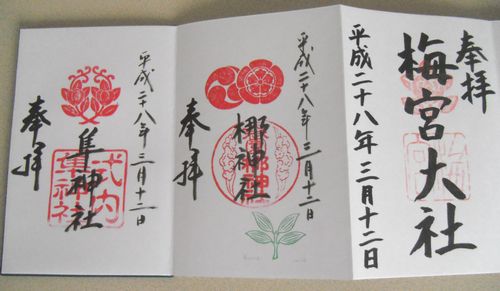 奉拝
梅宮大社
平成二十八年三月十二日
平成二十八年三月十二日
梛神社
奉拝
平成二十八年三月十二日
隼神社
式内
隼神社
奉拝